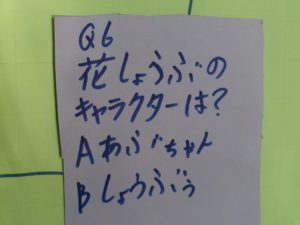 Q6
花しょうぶの
キャラクターは?
Aあぶちゃん
Bしょうぶぅ